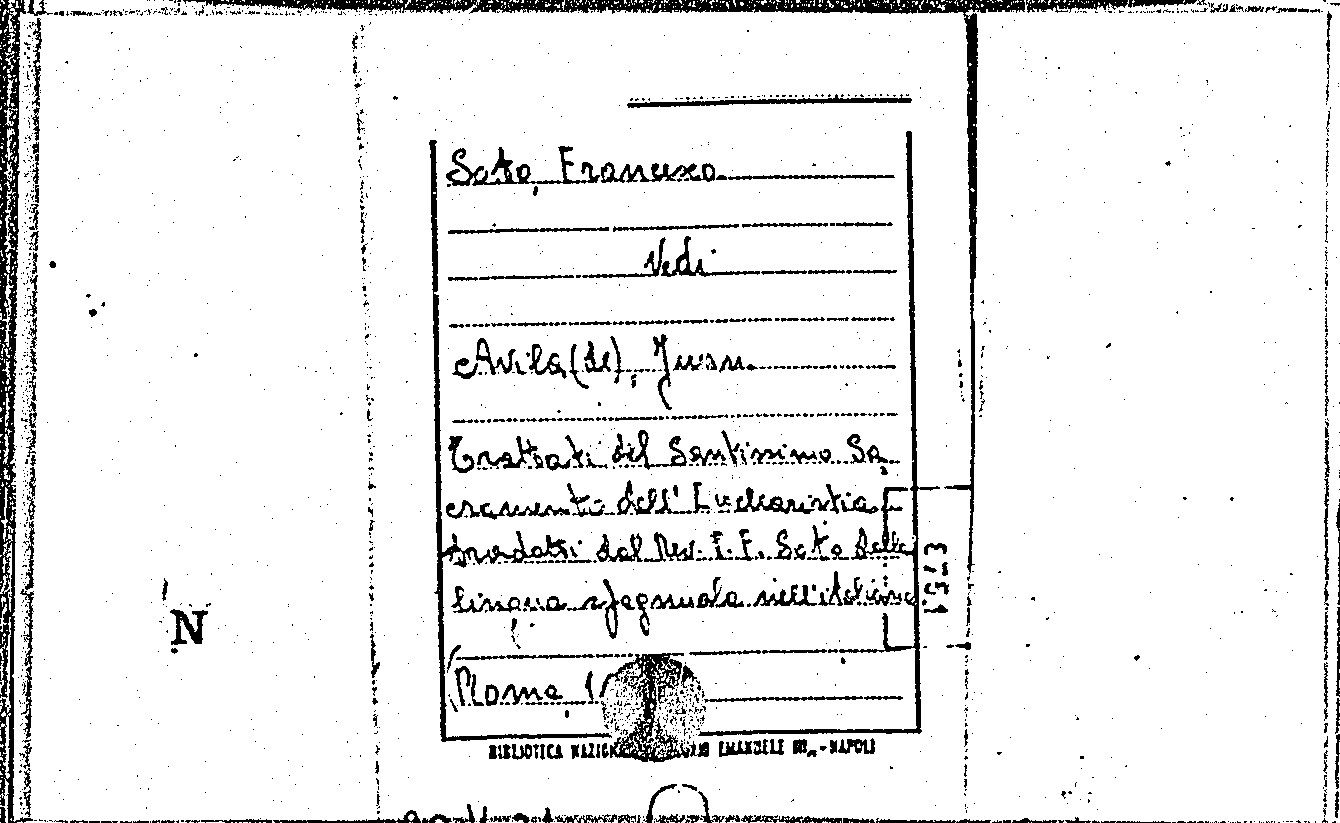 Soto, Francisco
Vedi
Avila (de), Juan
Trattati del Santissimo Sa
cramento dell' Eucharistia
tradotti dal Rev. F. F. Soto dalla
lingua spagnuola nell'italiana
Roma, 1
BIBLIOTECA EMANUELE III - NAPOLI
3751
N